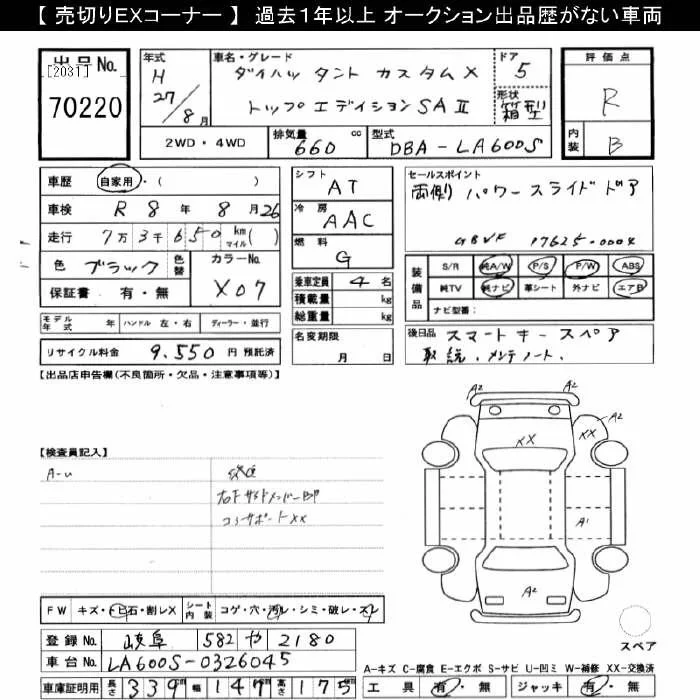 【 売切りEXコーナー 】 過去1年以上 オークション出品歴がない車両
出品No.
[2031]
70220
年式
H
27/8月
車名・グレード
ダイハツ タント カスタムX
トップエディションSAⅡ
ドア
5
形状
箱型
評価点
R
内装
B
2WD・4WD
排気量
660
cc
型式
DBA-LA600S
車歴
自家用・( )
車検
R 8年 8月26
走行
7万3千650
km
マイル
( )
色
ブラック
色替
カラーNo.
X07
保証書 有・無
モデル年式 年
ハンドル 左・右
ディーラー・並行
リサイクル料金 9,550 円 預託済
シフト
AT
冷房
AAC
燃料
G
乗車定員 4 名
積載量 kg
総重量 kg
名変期限
月 日
セールスポイント
両側パワースライドドア
GBVF 17625-0004
装備品
S/R 純A/W P/S P/W ABS
純TV 純ナビ 革シート 外ナビ エアB
ナビ型番:
後日品
スマートキー スペア
取説、メンテノート、
【出品店申告欄(不良箇所・欠品・注意事項等)】
【検査員記入】
A-u
右F サイドメンバーBP
コアサポートXX
A2
A2
A2
XX
XX
A1
A2
スペア
FW
キズ・トビ石・割レX
シート内装
コゲ・穴・汚レ・シミ・破レ・スレ
登録No. 岐阜 582 や 2180
車台No. LA600S-0326045
車庫証明用 長さ 339 幅 147 高さ 175
A-キズ C-腐食 E-エクボ S-サビ U-凹ミ W-補修 XX-交換済
工具 有・無 ジャッキ 有・無